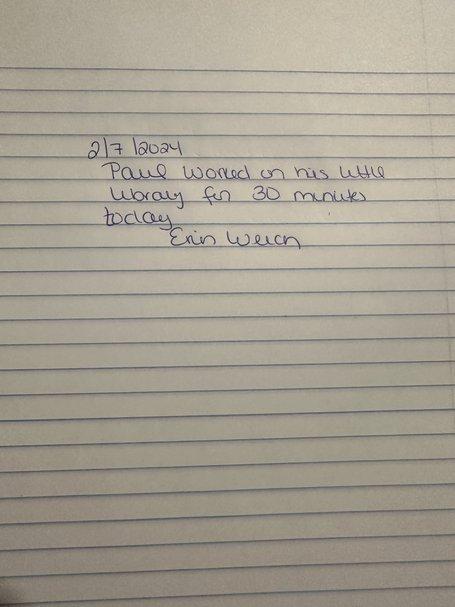 2/7/2024
Paul worked on his little
library for 30 minutes
today
Erin Welch